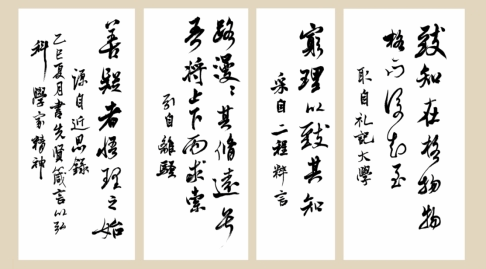 致知在格物物
格而后知至
取自礼記大學
窮理以致其知
采自二程粹言
路漫漫其脩遠兮
吾将上下而求索
引自離騷
善疑者悟理之始
源自近思錄
乙巳夏月書先賢箴言以弘
科學家精神